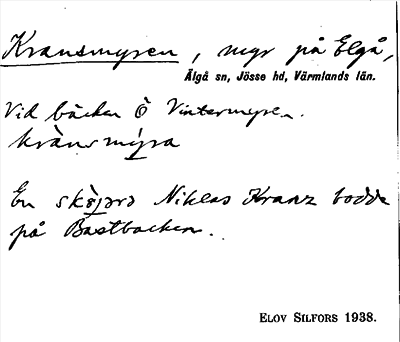 Kransmyren, myr på Elgå,
Älgå sn, Jösse hd, Värmlands län.
Vid bäcken Ö Vintermyren.
krànsmýra
En Niklas Kranz bodde
på Bastbacken.
ELOV SILFORS 1938.